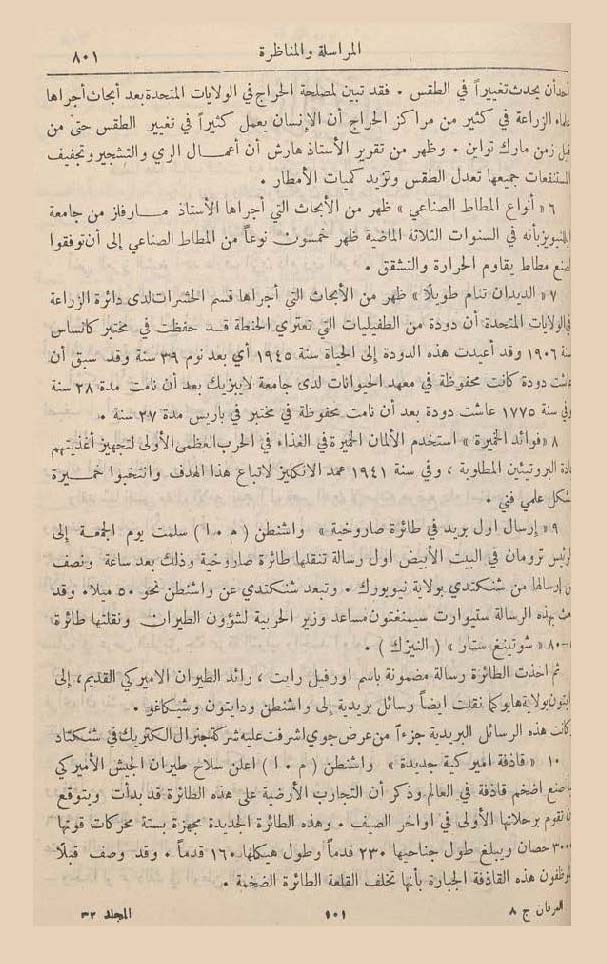 المراسلة والمناظرة ٨٠١
أن يحدث تغييراً في الطقس . فقد تبين لمصلحة الحراج في الولايات المتحدة بعد أبحاث أجراها
الزراعة في كثير من مراكز الحراج أن الإنسان يعمل كثيراً في تغيير الطقس حتى من
زمن مارك تراين . وظهر من تقرير الأستاذ هارش أن أعمال الري والتشجير وتجفيف
المستنقعات جميعها تعدل الطقس وتزيد كميات الأمطار .
٦ « أنواع المطاط الصناعي » ظهر من الأبحاث التي أجراها الأستاذ مارفلز من جامعة
بأنه في السنوات الثلاثة الماضية ظهر خمسون نوعاً من المطاط الصناعي إلى أن توفقوا
مطاط يقاوم الحرارة والتشقق .
٧ « الديدان تنام طويلاً » ظهر من الأبحاث التي أجراها قسم الحشرات لدى دائرة الزراعة
الولايات المتحدة أن دودة من الطفيليات التي تعتري الحنطة قد حفظت في مختبر كانساس
سنة ١٩٠٦ وقد أعيدت هذه الدودة إلى الحياة سنة ١٩٤٥ أي بعد نوم ٣٩ سنة وقد سبق أن
عاشت دودة كانت محفوظة في معهد الحيوانات لدى جامعة لايبزيك بعد أن نامت مدة ٢٨ سنة
وفي سنة ١٧٧٥ عاشت دودة بعد أن نامت محفوظة في مختبر في باريس مدة ٢٧ سنة .
٨ « فوائد الخميرة » استخدم الألمان الخميرة في الغذاء في الحرب العظمى الأولى لتجهيز أغذيتهم
البروتيئين المطلوبة ، وفي سنة ١٩٤١ عمد الانكليز لاتباع هذا الهدف وانتخبوا خميرة
بشكل علمي فني .
٩ « إرسال اول بريد في طائرة صاروخية » واشنطن ( م ٠ ا ) سلمت يوم الجمعة إلى
الرئيس ترومان في البيت الأبيض اول رسالة تنقلها طائرة صاروخية وذلك بعد ساعة ونصف
من إرسالها من شنكتدي بولاية نيويورك . وتبعد شنكتدي عن واشنطن نحو ٥٠ ميلا . وقد
بهذه الرسالة ستيوارت سيمنغتون مساعد وزير الحربية لشؤون الطيران ونقلتها طائرة
٨٠ « شوتينغ ستار » ( النيزك ) .
ثم اخذت الطائرة رسالة مضمونة باسم اورفيل رايت ، رائد الطيران الاميركي القديم ، إلى
دايتون بولاية هايو كما نقلت ايضاً رسائل بريدية إلى واشنطن ودايتون وشيكاغو .
وكانت هذه الرسائل البريدية جزءاً من عرض جوي اشرفت عليه شركة جنرال الكتريك في شنكتاد
١٠ « قاذفة اميركية جديدة » واشنطن ( م ٠ ا ) اعلن سلاح طيران الجيش الأميركي
صنع اضخم قاذفة في العالم وذكر أن التجارب الأرضية على هذه الطائرة قد بدأت ويتوقع
تقوم برحلاتها الأولى في اواخر الصيف . وهذه الطائرة الجديدة مجهزة بستة محركات قوتها
٣٠٠٠ حصان ويبلغ طول جناحيها ٢٣٠ قدماً وطول هيكلها ١٦٠ قدماً . وقد وصف قبلاً
الموظفون هذه القاذفة الجبارة بأنها تخلف القلعة الطائرة الضخمة .
العرفان ج ٨ ١٠١ المجلد ٣٢